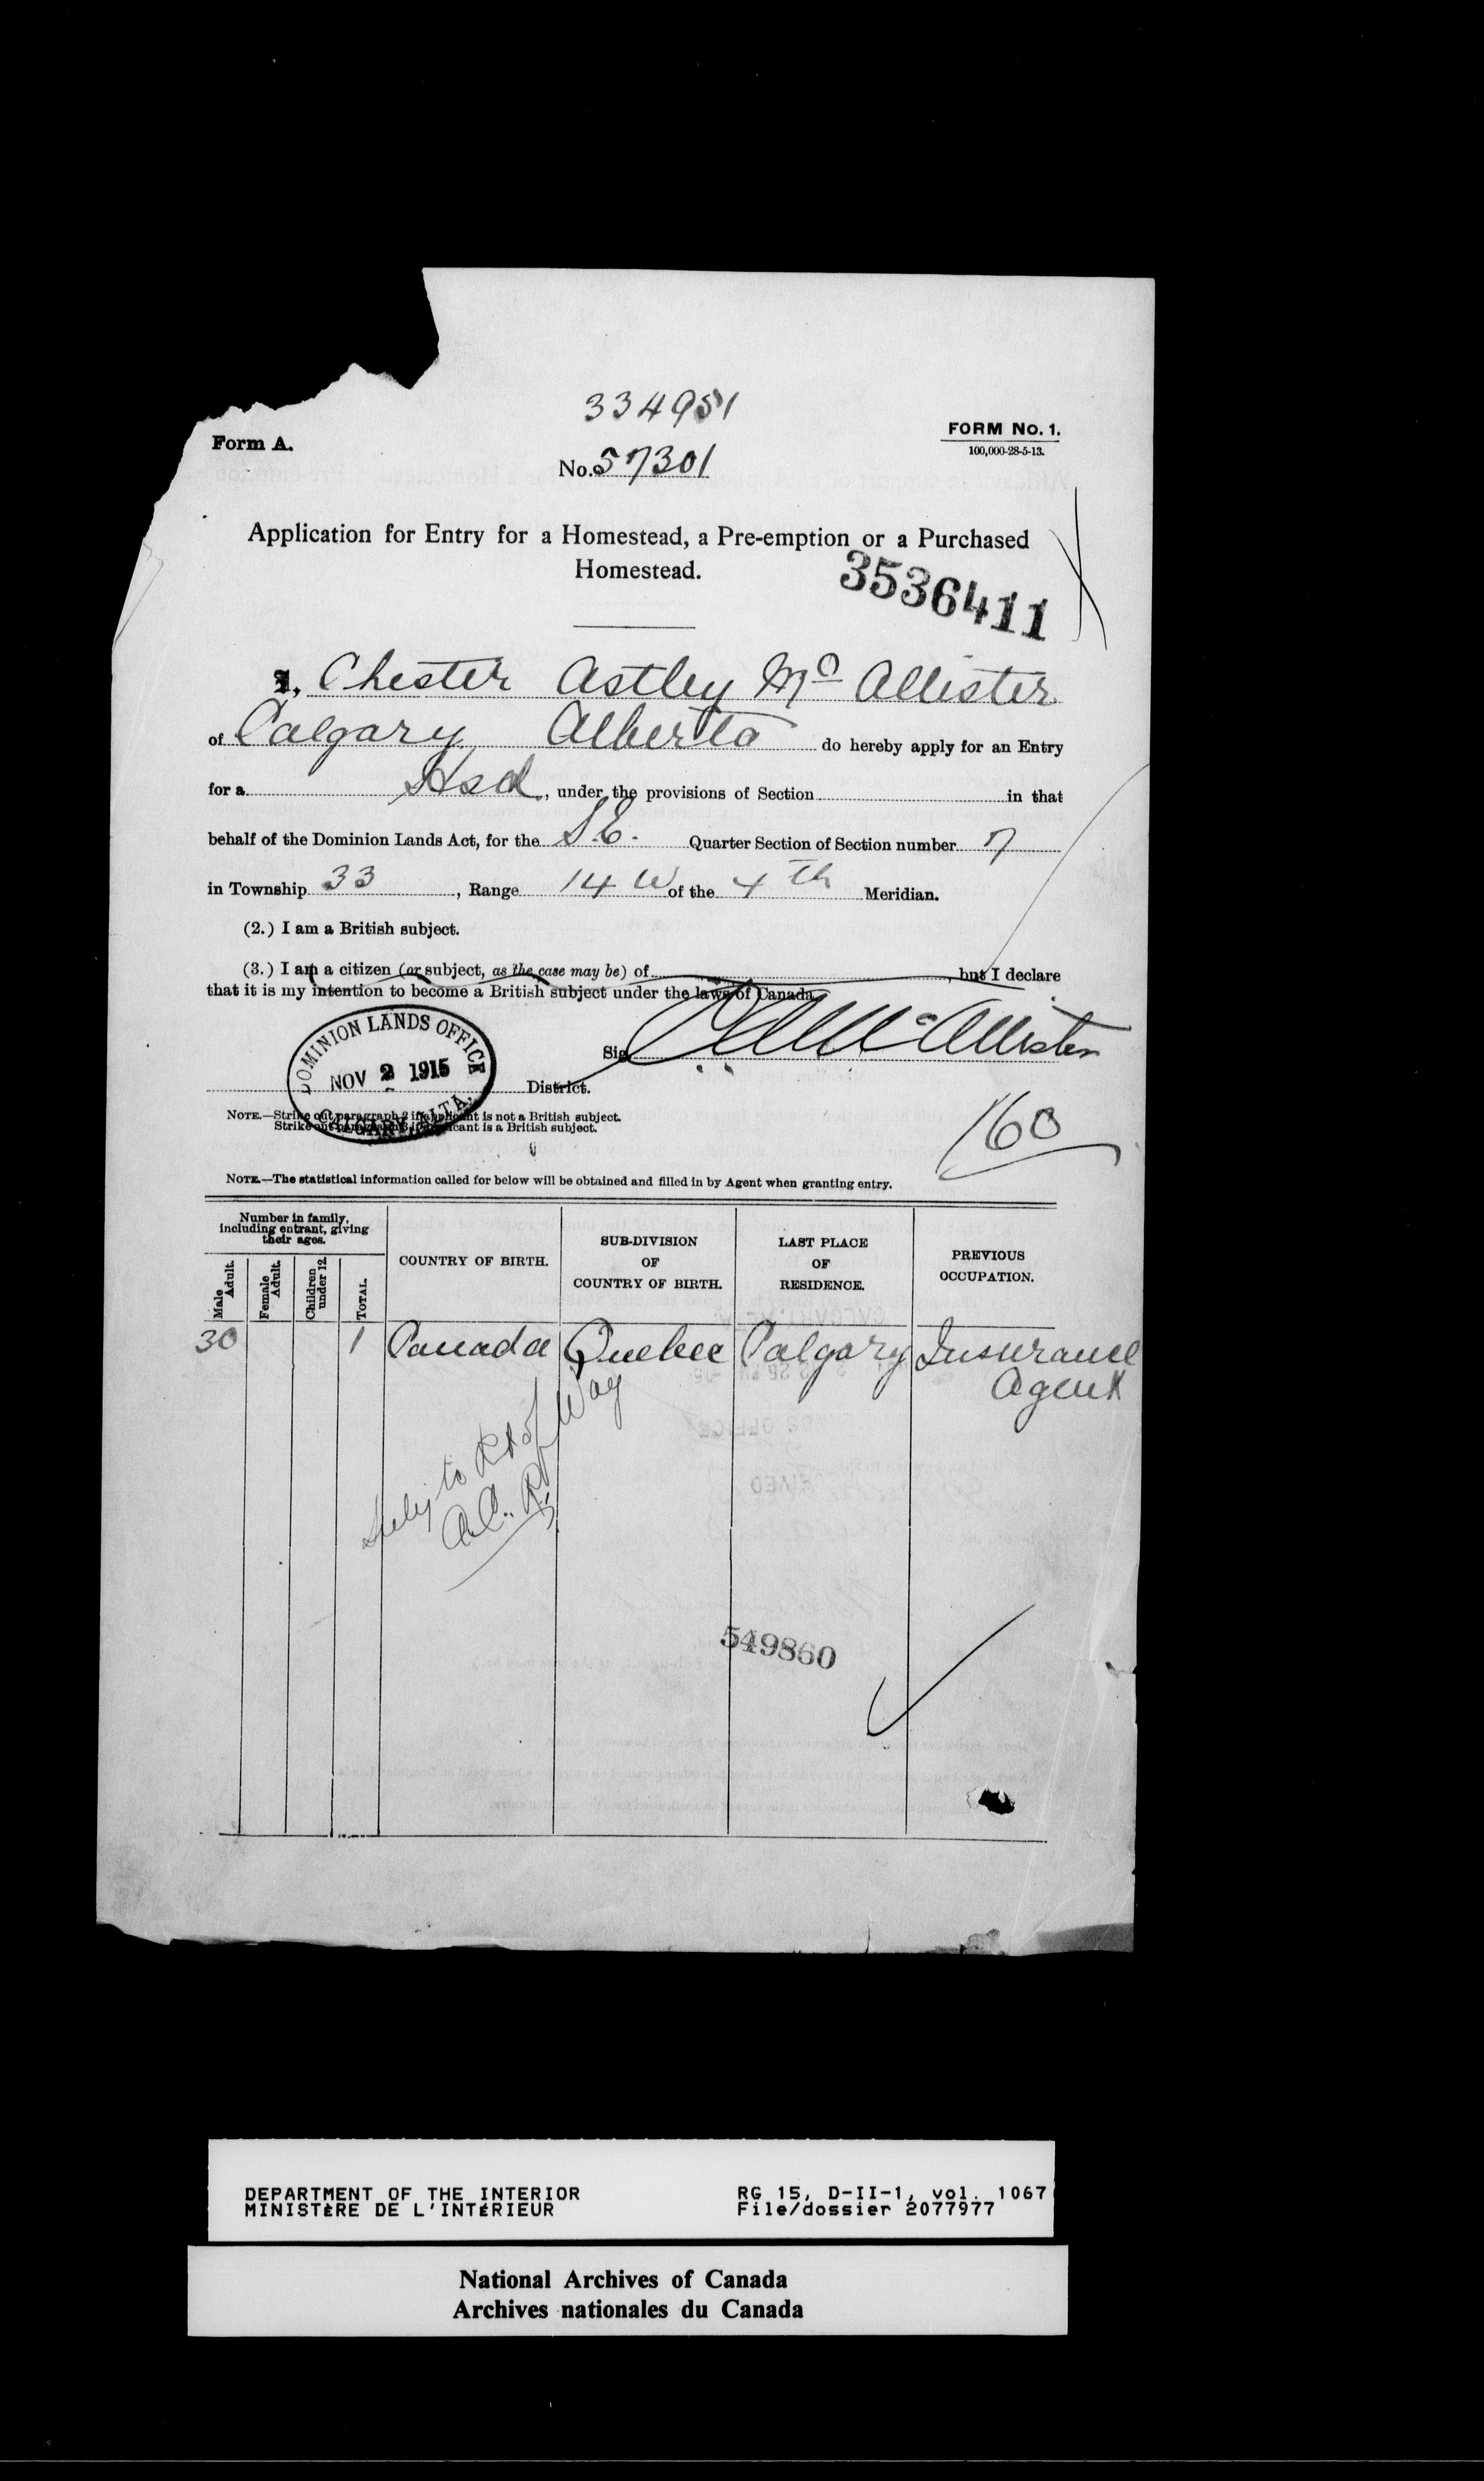 334951
Form A.
FORM No. 1.
100,000-28-5-13.
No. 57301
Application for Entry for a Homestead, a Pre-emption or a Purchased
Homestead.
3536411
I, Chester Astley Mc Allister
of Calgary Alberta do hereby apply for an Entry
for a Hsd, under the provisions of Section in that
behalf of the Dominion Lands Act, for the S.E. Quarter Section of Section number 7
in Township 33, Range 14 W of the 4th Meridian.
(2.) I am a British subject.
(3.) I am a citizen (or subject, as the case may be) of , but I declare
that it is my intention to become a British subject under the laws of Canada.
DOMINION LANDS OFFICE
NOV 2 1915
CALGARY, ALTA.
Sig. C A McAllister
District.
NOTE.—Strike out paragraph 2 if applicant is not a British subject.
Strike out paragraph 3 if applicant is a British subject.
160
NOTE.—The statistical information called for below will be obtained and filled in by Agent when granting entry.
Number in family, including entrant, giving their ages.
Male Adult.
Female Adult.
Children under 12.
TOTAL.
COUNTRY OF BIRTH.
SUB-DIVISION OF COUNTRY OF BIRTH.
LAST PLACE OF RESIDENCE.
PREVIOUS OCCUPATION.
30 1 Canada Quebec Calgary Insurance
Agent
Subj to Rt of Way
549860
DEPARTMENT OF THE INTERIOR
MINISTÈRE DE L'INTÉRIEUR
RG 15, D-II-1, vol. 1067
File/dossier 2077977
National Archives of Canada
Archives nationales du Canada